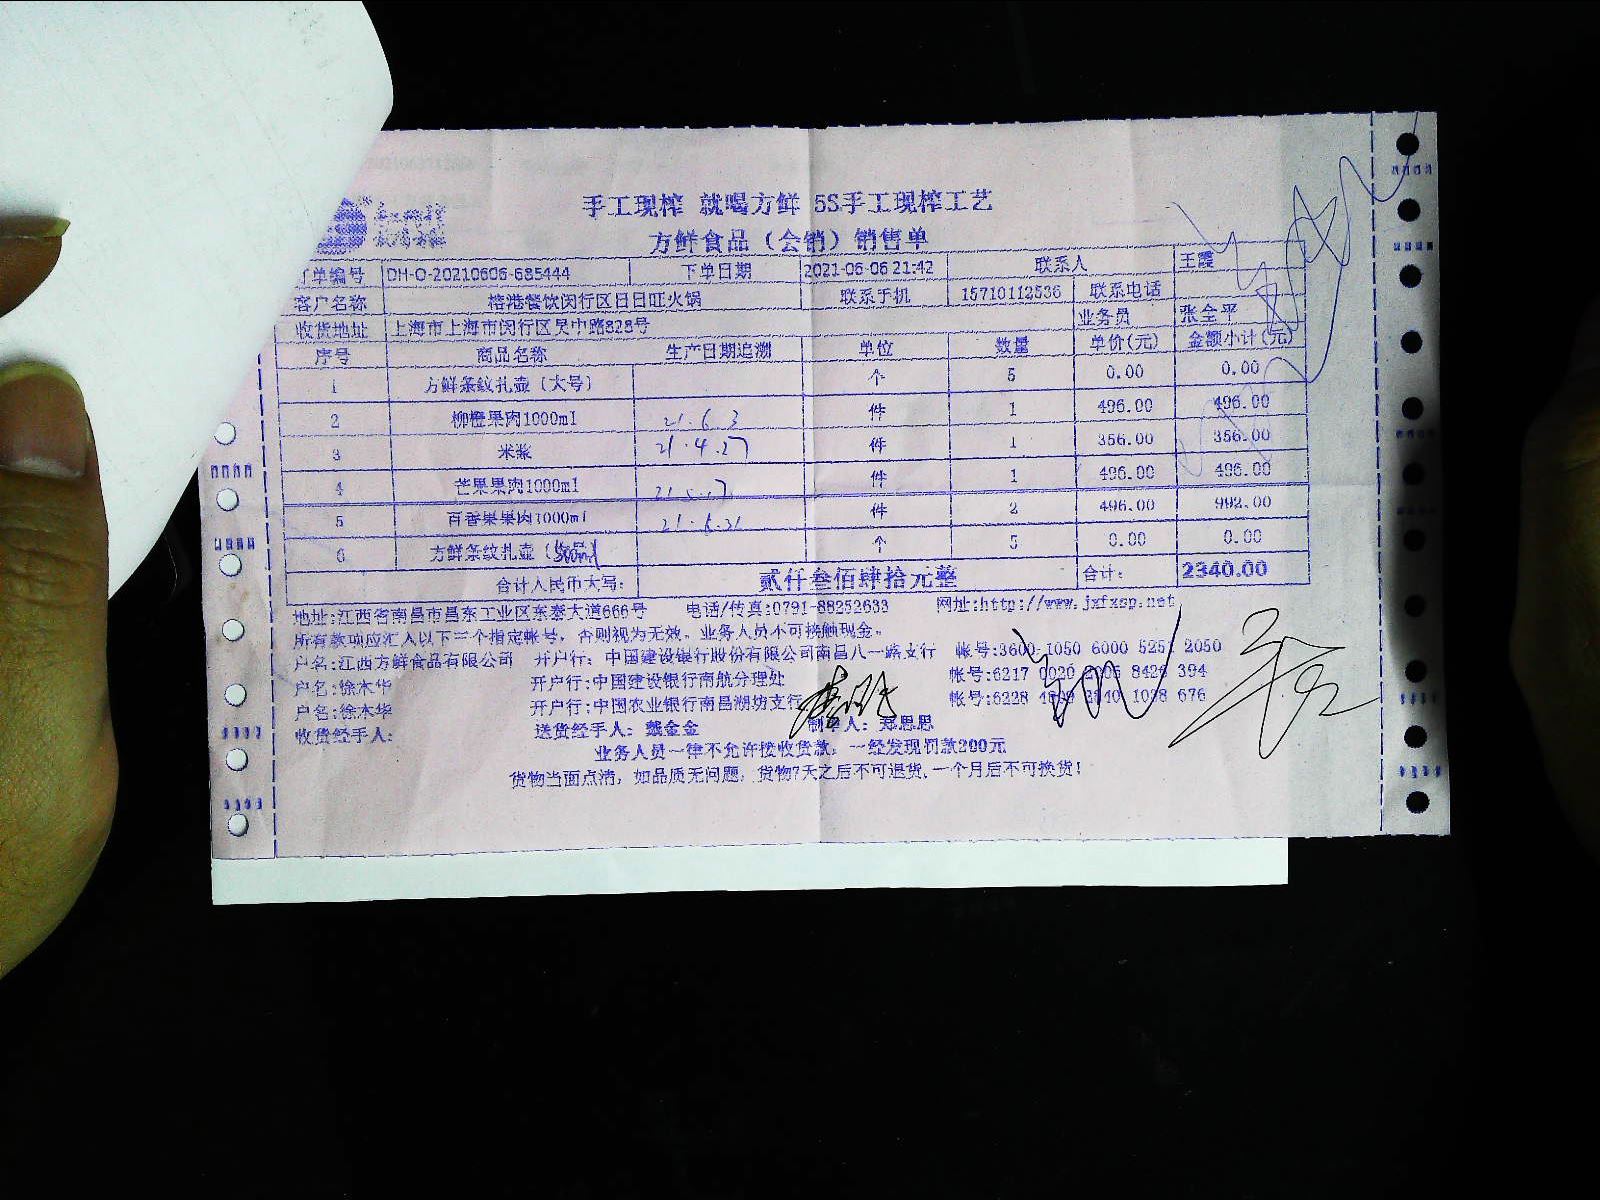 手工现榨 就喝方鲜 5S手工现榨工艺
方鲜食品（会销）销售单
订单编号 DH-O-20210606-685444 下单日期 2021-06-06 21:42 联系人 王霞
客户名称 榕港餐饮闵行区日日旺火锅 联系手机 15710112536 联系电话
收货地址 上海市上海市闵行区吴中路828号 业务员 张全平
序号 商品名称 生产日期追溯 单位 数量 单价(元) 金额小计(元)
1 方鲜条纹扎壶（大号） 个 5 0.00 0.00
2 柳橙果肉1000ml 21.6.3 件 1 496.00 496.00
3 米浆 21.4.27 件 1 356.00 356.00
4 芒果果肉1000ml 件 1 496.00 496.00
5 百香果果肉1000ml 件 2 496.00 992.00
6 方鲜条纹扎壶 个 5 0.00 0.00
合计人民币大写: 贰仟叁佰肆拾元整 合计: 2340.00
地址:江西省南昌市昌东工业区东泰大道666号 电话/传真:0791-88252633 网址:http://www.jxfxsp.net
所有款项应汇入以下三个指定帐号，否则视为无效。业务人员不可接触现金。
户名:江西方鲜食品有限公司 开户行: 中国建设银行股份有限公司南昌八一路支行 帐号:3600 1050 6000 5251 2050
户名:徐木华 开户行:中国建设银行南航分理处 帐号:6217 0020 8426 394
户名:徐木华 开户行:中国农业银行南昌湖坊支行 帐号:6228 1038 676
收货经手人: 送货经手人: 戴金金 制单人: 郑思思
业务人员一律不允许接收货款，一经发现罚款200元
货物当面点清，如品质无问题，货物7天之后不可退货，一个月后不可换货!